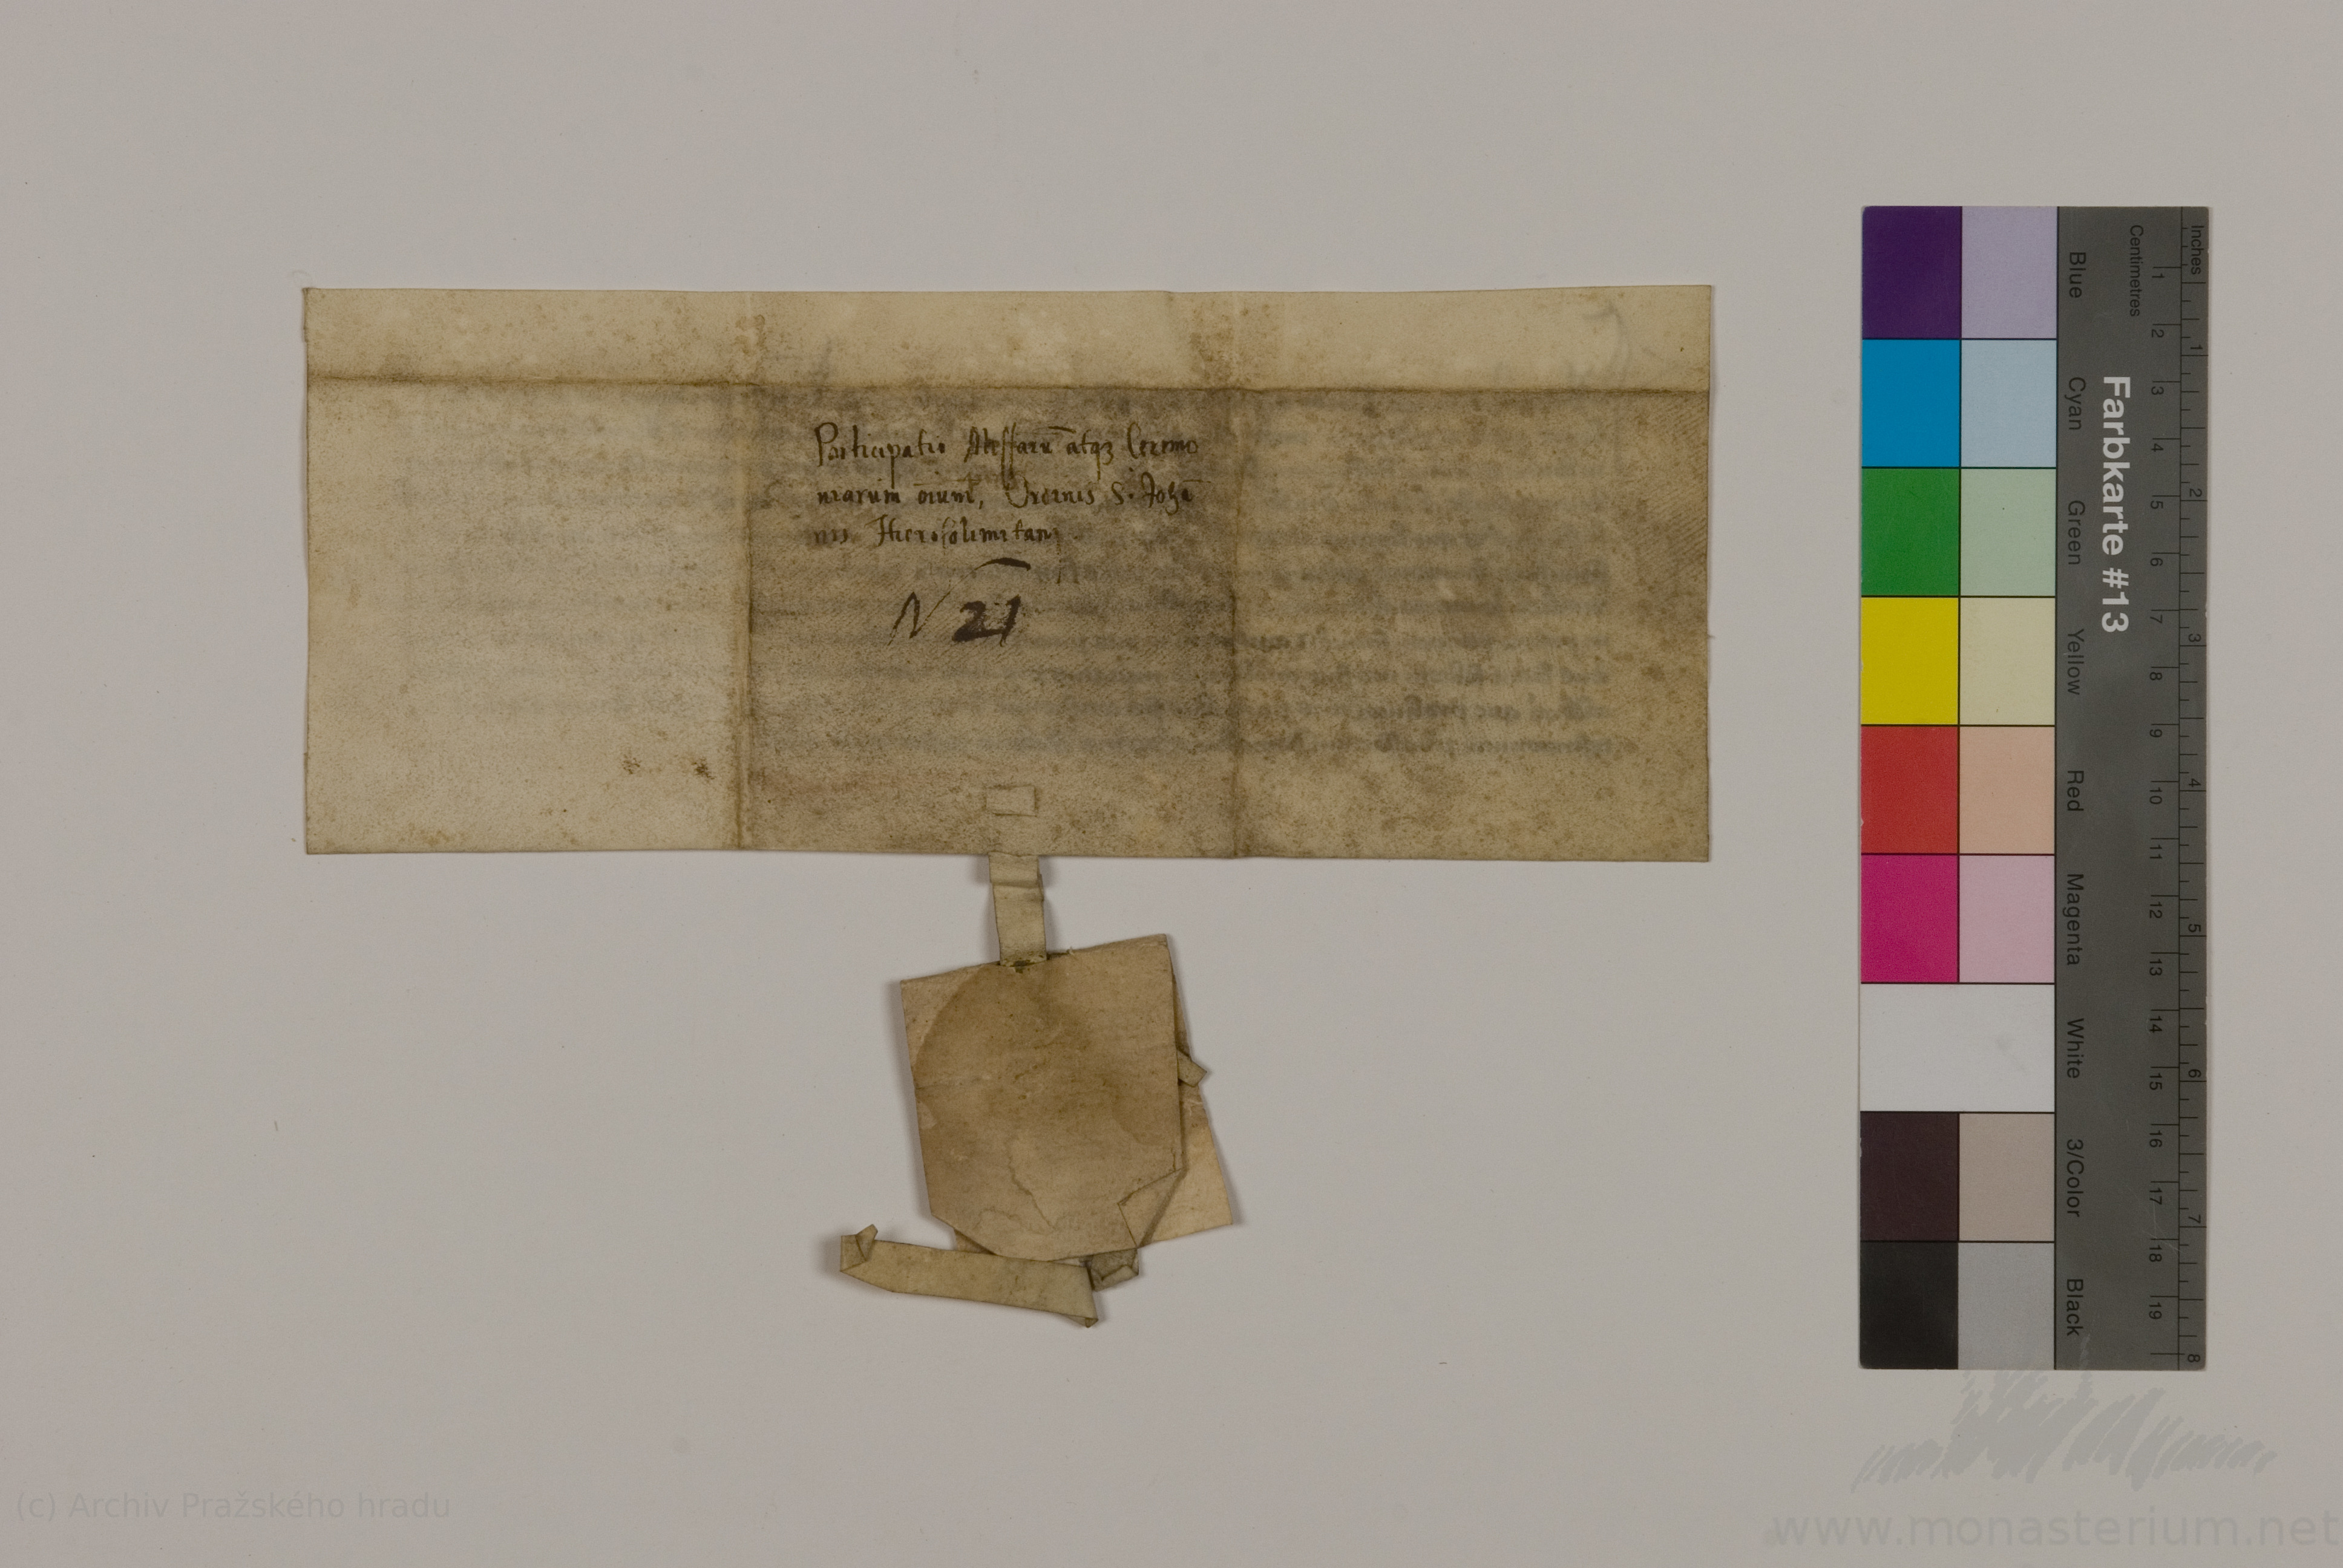 Participatio Missarū atqȝ Ceremo
niarum oīum, Ordinis S. Johā
nis Hierosolimitani
N 21
Inches
Centimetres
Farbkarte #13
Blue
Cyan
Green
Yellow
Red
Magenta
White
3/Color
Black
1 2 3 4 5 6 7 8 9 10 11 12 13 14 15 16 17 18 19
1 2 3 4 5 6 7 8
(c) Archiv Pražského hradu
www.monasterium.net